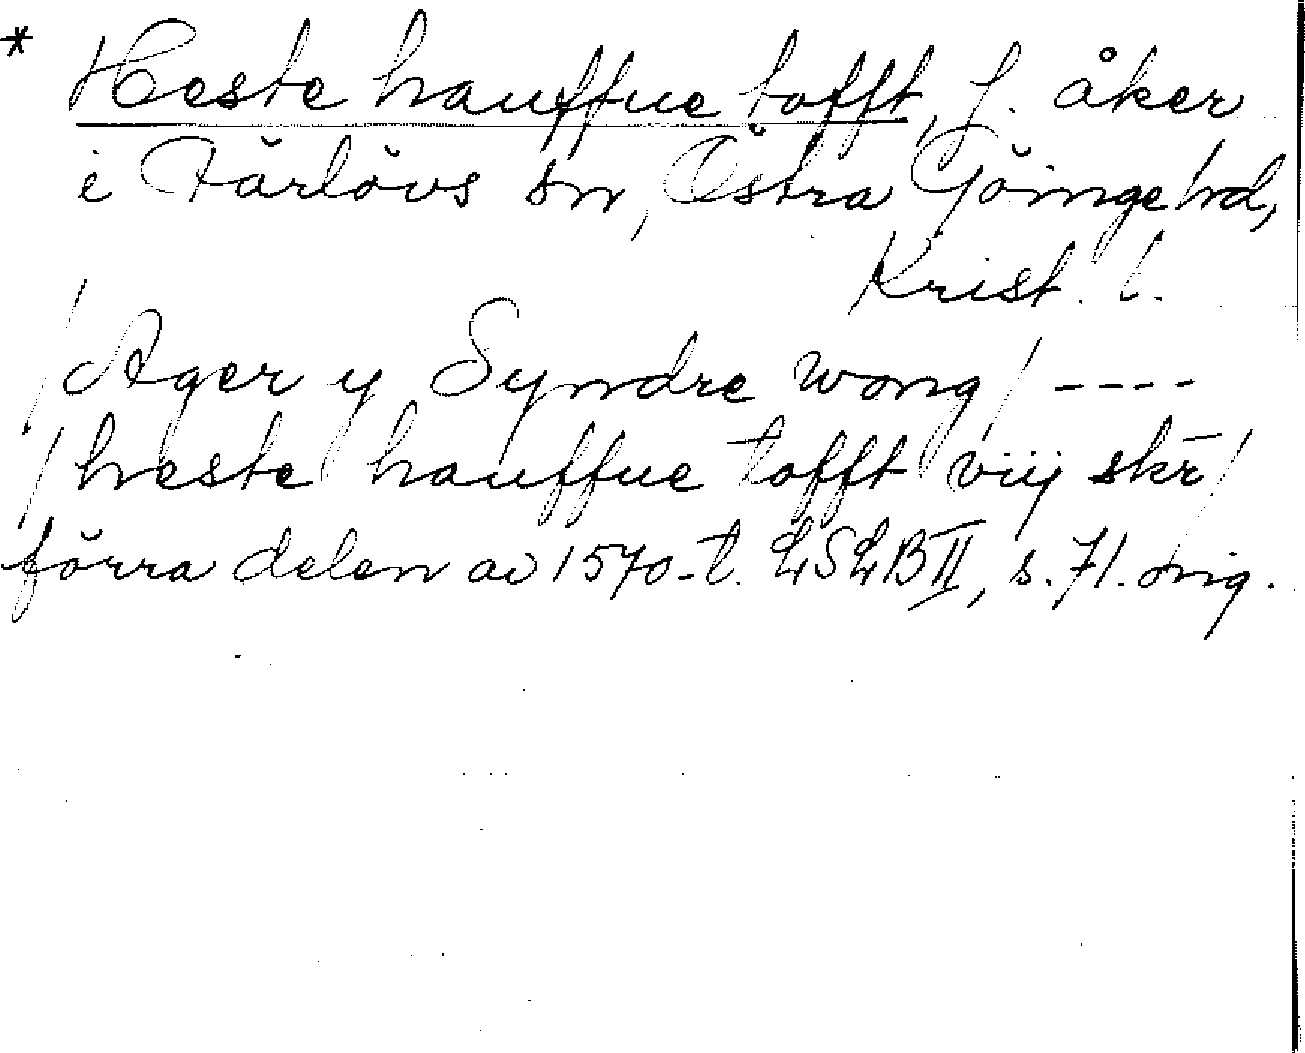 * Heste hauffue tofft, f. åker
i Färlövs sn, Östra Göinge hd,
Krist. l.
/Ager y Syndre wong/ ----
/heste hauffue tofft viij skr̄/
förra delen av 1570-t. LSLB II, s. 71. orig.